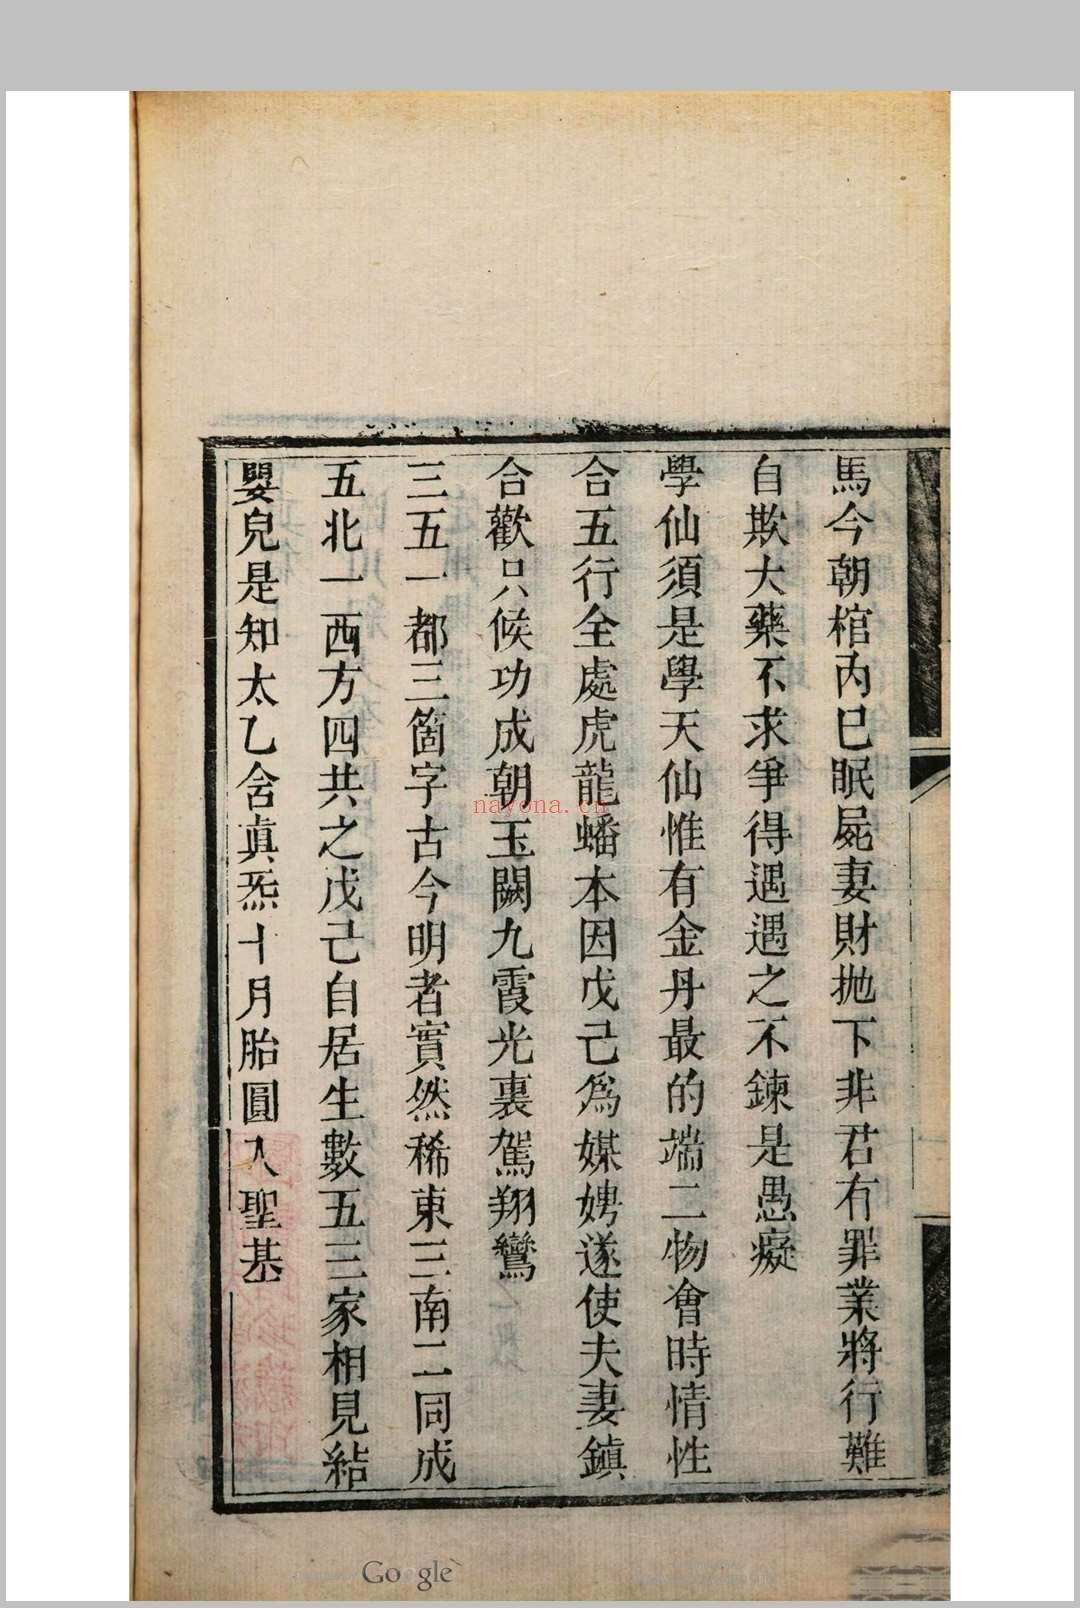 馬今朝棺內已眠屍妻財拋下非君有罪業將行難
自欺大藥不求爭得遇遇之不鍊是愚癡
學仙須是學天仙惟有金丹最的端二物會時情性
合五行全處虎龍蟠本因戊己爲媒娉遂使夫妻鎮
合歡只候功成朝玉闕九霞光裏駕翔鸞
三五一都三箇字古今明者實然稀東三南二同成
五北一西方四共之戊己自居生數五三家相見結
嬰兒是知太乙含真炁十月胎圓入聖基
nayona.cn
Google